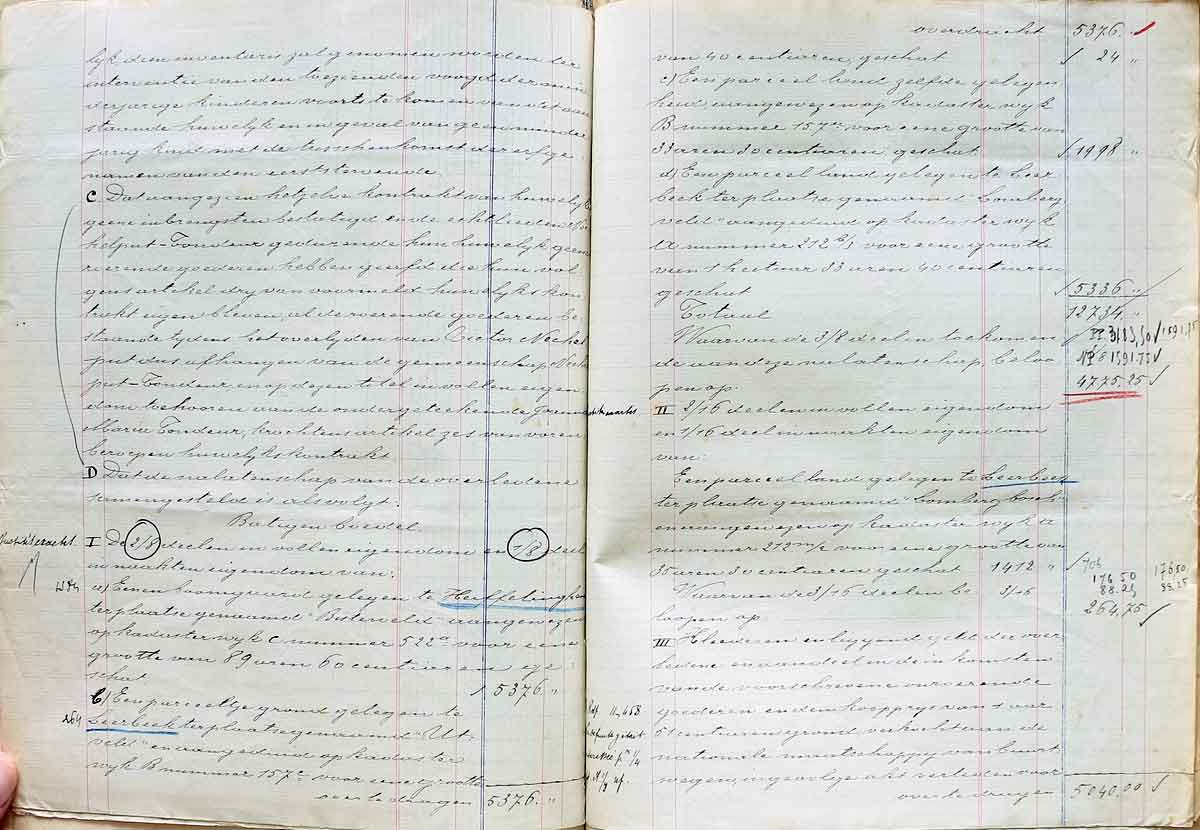 lijk dien inventaris zal genomen worden ter
interventie van den toezienden voogd der min
derjarige kinderen voorts te komen van
staande huwelijk en in geval van geen minder
jarig kind met de tusschenkomst der erfge
namen van den eerststervende.
C Dat aangezien hetzelve kontrakt van huwelijk
geene inbrengsten bestatigd en de echtlieden
helput-Tondeur gedurende hun huwelijk geen
roerende goederen hebben geerfd die hun vol
gens artikel dry van voormeld huwelijks kon
trakt eigen bleven, al de roerende goederen be
staande tydens het overlyden van Victor Nechel
put dus afhangen van de gemeenschap Nechel
put-Tondeur en op dezen titel in vollen eigen
dom toehooren aan de ondergeteekende
Maria Tondeur, krachtens artikel zes van voren
beroepen huwelijkskontrakt.
D Dat de nalatenschap van de overledene
samengesteld is als volgt:
Batigen Boedel.
I De 2/8 deelen in vollen eigendom en 1/8 deel
in naakten eigendom van:
a) Eenen boomgaard gelegen te Herffelingen
ter plaatse genaamd Bisteveld aangewezen
op kadaster wyk C nummer 522a voor eene
grootte van 89 aren 60 centiaren ge
schat 5376 "
264 b) Een perceeltje grond gelegen te
Leerbeek ter plaatse genaamd "Ut-
veld" en aangeduid op kadaster
wyk B nummer 157c voor eene grootte
over te dragen 5376. "
overdracht 5376. "
van 40 centiaren, geschat 24 "
c) Een parceel land zelfde gelegen
heid aangewezen op kadaster wyk
B nummer 157 voor eene grootte van
33 aren 30 centiaren geschat 1998 "
d) Een parceel land gelegen te Leer
beek ter plaatse genaamd "Lomberg
veld" aangeduid op kadaster wyk
A nummer 212 b/1 voor eene grootte
van 1 hectaar 33 aren 40 centiaren
geschat 5336 "
Totaal 12734. "
Waarvan de 3/8 deelen toekomen
de aan deze nalatenschap, beloo
pen op: 4775.25
3183,50 1591.75
1591.75
II 2/16 deelen in vollen eigendom
en 1/16 deel in naakten eigendom
van:
Een parceel land gelegen te Leerbeek
ter plaatse genaamd "Lombergbosch"
en aangewezen op kadaster wyk A
nummer 213 m/2 voor eene grootte van
35 aren 30 centiaren geschat 1412 "
Waarvan de 3/16 deelen be 3/16
loopen op 264.75
176 50
88.25
176,50
88.25
III Kleederen en liggend geld der over
ledene en aandeel in de inkomsten
van de voorschrevene onroerende
goederen en den koopprys van 1 aar
51 centiaren grond verkocht aan de
nationale maatschappy van buurt
wegen, ingevolge akt verleden voor
over te dragen 5040.00